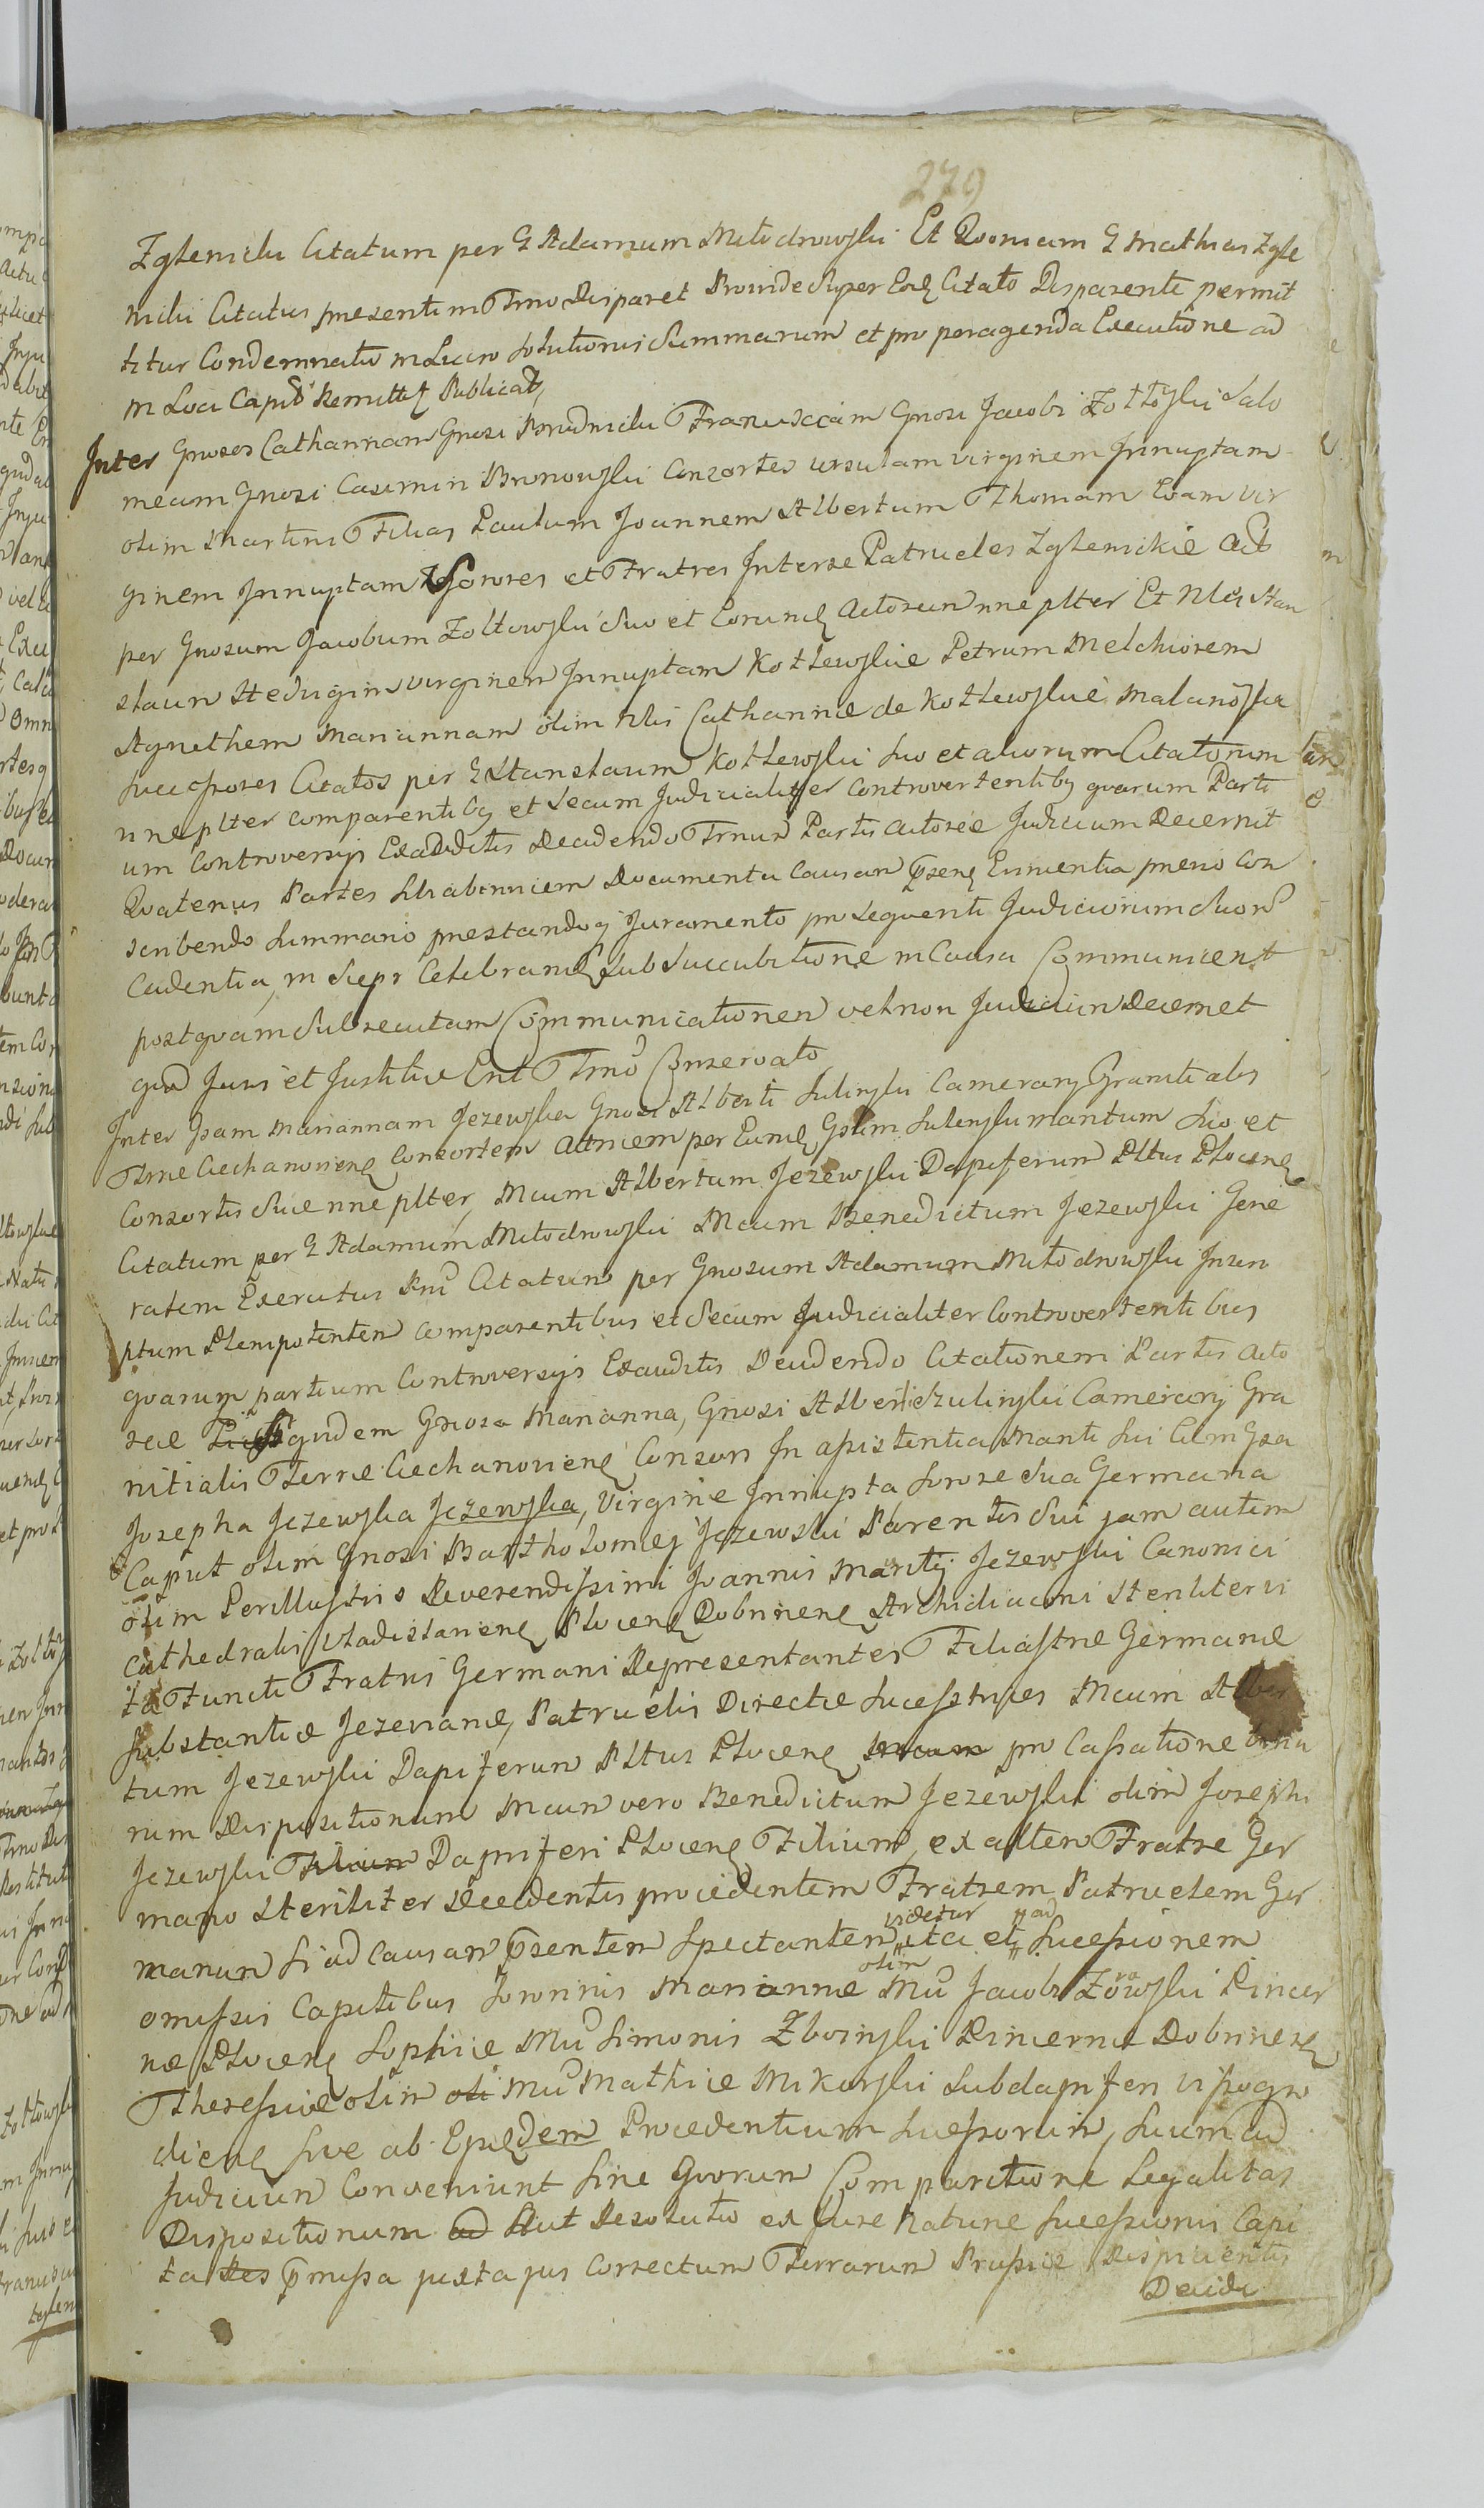 279
Zglenicki Citatum per G Adamum Miłodrowski Et Qooniam G Mathias Zgle
nicki Citatus presenti in Trno Disparet Proinde Super Eod Citato Disparente permit
titur Condemnatio in Lucro Solutionis Summarum et pro peragenda Executione ad
m Loci Capit Remittit Publicat,
Inter Gnosos Catharinam Gnosi Prudnicki Franciscam Gnosi Jacobi Zołtowski Salo
meam Gnosi Casimiri Bronowski Consortes Ursulam virginem Innuptam
olim Martini Filias Paulum Joannem Albertum Thomam Evam vir
ginem Innuptam Sorores et Fratres Inter se Patrueles Zglenickie Act
per Gnosum Jacobum Zołtowski Suo et Eorund Actorum nne plter Et Nlem Stani
slaum Hedvigim virginem Innuptam Kotlewskie Petrum Melchiorem
Agnethem Mariannam olim Nlis Catharinæ de Kotlewskie Malanoska
Successores Citatos per G Stanislaum Kotlewski suo et aliorum Citatorum
nne plter comparentibq et Secum Judicialiter Controvertentibq qvarum Parti
um Controversys Exauditis Decidendo Trnus Partis Actoreæ Judicium Decernit
Qvatenus Partes Ultrabinniem Documenta Causam presen Enucentia previo Con
scribendo Summario prestandoq Juramento pro Seqventi Judiciorum Suor
Cadentia, in Siepr Celebrand Sub Succubitione in Causa Communicent
postqvam Subsecutam Communicationem vel non Judicium Decernet
qvod Juris et Justitiæ Erit Trno Conservato
Inter Gsam Mariannam Jezewska Gnosi Alberti Sulinski Camerarÿ Granitialis
Trræ Ciechanovien Consortem Actricem per Eund Gsum Sulenski maritum Suo et
Consortis Suæ nne plter, Mcum Albertum Jezewski Dapiferum Pltus Plocen
Citatum per G Adamum Miłodrowski Mcum Benedictum Jezewski Gene
ralem Exercitus Rni Citatum per Gnosum Adamum Miłodrowski Inscri
ptum Plenipotentem comparentibus et Secum Judicialiter Controvertentibus
qvarum partium Controversys Exauditis Decidendo Citationem Partis Acto
reæ qvidem Gnosa Marianna, Gnosi Alberti Szulinski Camerarÿ Gra
nitialis Terræ Ciechanovien Consors In apistentia Mariti Sui Cum Gsa
Josepha Jezewska Jezewska, Virgine Innupta Sorore Sua Germana
Caput olim Gnosi Bartholomei Jezewski Parentis Sui jam autem
olim Perillustris Reverendissimi Joannis Jezewski Canonici
Cathedralis Vladislavien Plocen Dobrinen Archidiaconi Steriliter vi
ta Functi Fratris Germani Representantes Filiastræ Germanæ
Substantiæ Jezevianæ, Patruelis Directæ Sucestrices Mcum Alber
tum Jezewski Dapiferum Pltus Plocen pro Cassatione
rum Dispositionum Mcum vero Benedictum Jezewski olim Josephi
Jezewski Filium Dapiferi Plocen Filium, ex altero Fratre Ger
mano Steriliter Decedentis procedentem Fratrem Patruelem Ger
manum Si ad Causam presentem Spectantem videtur ita et ad Sucessionem
omissis Capitibus Sororis Mariannæ olim Mci Jacobi Zorawski Pincer
næ Plocen Sophiæ Mci Simonis Zboinski Pincernæ Dobrinen
Theressiæ olim oli Mci Mathiæ Mikorski Subdapiferi Vissogro
dien Sive ab Epedem Procedentium Sucessorum, Suum ad
Judicium Conveniunt Sine Qvorum Comparitione Legalitas
Dispositionum ad Aut Resolutio ex Jure Naturæ Sucessionis Capi
ta Des premissa juxta jus Correctum Terrarum Prussiæ Respicientis
Decidi